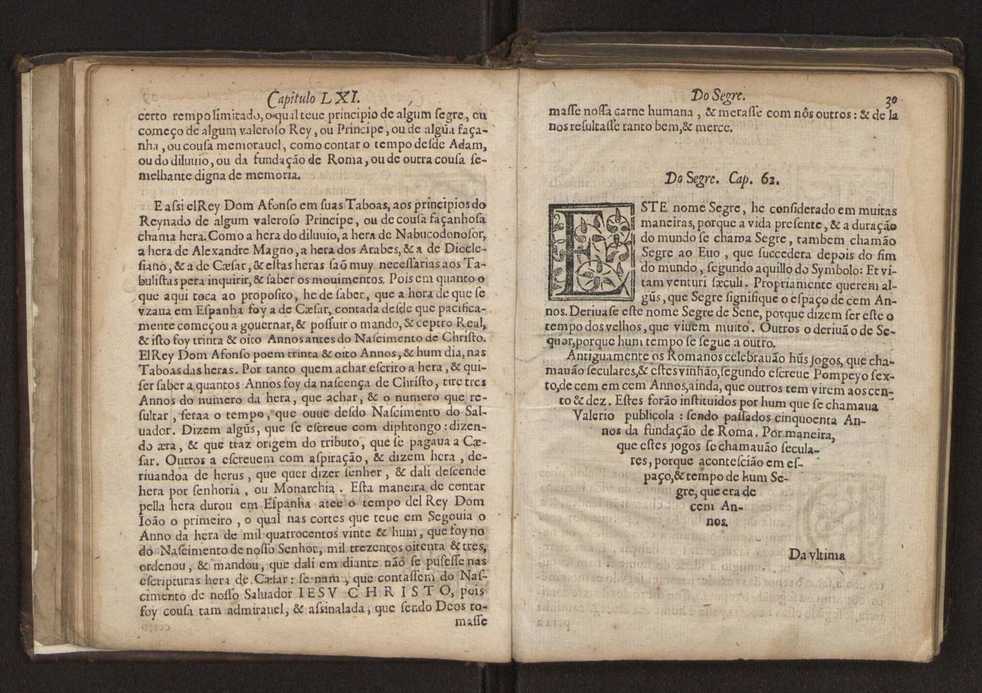 Capitulo LXI.
certo tempo limitado, o qual teue principio de algum segre, ou
começo de algum valeroso Rey, ou Principe, ou de algũa faça-
nha, ou cousa memorauel, como contar o tempo desde Adam,
ou do diluuio, ou da fundação de Roma, ou de outra cousa se-
melhante digna de memoria.
E assi elRey Dom Afonso em suas Taboas, aos principios do
Reynado de algum valeroso Principe, ou de cousa façanhosa
chama hera. Como a hera do diluuio, a hera de Nabucodonosor,
a hera de Alexandre Magno, a hera dos Arabes, & a de Diocle-
siano, & a de Cæsar, & estas heras saõ muy necessarias aos Ta-
bulistas pera inquirir, & saber os mouimentos. Pois em quanto o
que aqui toca ao proposito, he de saber, que a hora de que se
vzaua em Espanha foy a de Cæsar, contada desde que pacifica-
mente começou a gouernar, & possuir o mando, & ceptro Real,
& isto foy trinta & oito Annos antes do Nascimento de Christo.
ElRey Dom Afonso poem trinta & oito Annos, & hum dia, nas
Taboas das heras. Por tanto quem achar escrito a hera, & qui-
ser saber a quantos Annos foy da nascença de Christo, tire tres
Annos do numero da hera, que achar, & o numero que re-
sultar, seraa o tempo, que ouue desdo Nascimento do Sal-
uador. Dizem algũs, que se escreue com diphtongo: dizen-
do æra, & que traz origem do tributo, que se pagaua a Cæ-
sar. Outros a escreuem com aspiração, & dizem hera, de-
riuandoa de herus, que quer dizer senhor, & dali descende
hera por senhoria, ou Monarchia. Esta maneira de contar
pella hera durou em Espanha atee o tempo del Rey Dom
Ioão o primeiro, o qual nas cortes que teue em Segouia o
Anno da hera de mil quatrocentos vinte & hum, que foy no
do Nascimento de nosso Senhor, mil trezentos oitenta & tres,
ordenou, & mandou, que dali em diante não se pusesse nas
escripturas hera de Cæsar: se nam, que contassem do Nas-
cimento de nosso Saluador IESV CHRISTO, pois
foy cousa tam admirauel, & assinalada, que sendo Deos to-
masse
Do Segre. 30
masse nossa carne humana, & morasse com nôs outros: & de la
nos resultasse tanto bem, & merce.
Do Segre. Cap. 62.
ESTE nome Segre, he considerado em muitas
maneiras, porque a vida presente, & a duração
do mundo se chama Segre, tambem chamão
Segre ao Euo, que succedera depois do fim
do mundo, segundo aquillo do Symbolo: Et vi-
tam venturi sæculi. Propriamente querem al-
gũs, que Segre signifique o espaço de cem An-
nos. Deriuase este nome Segre de Sene, porque dizem ser este o
tempo dos velhos, que viuem muito. Outros o deriuão de Se-
quor, porque hum tempo se segue a outro.
Antiguamente os Romanos celebrauão hũs jogos, que cha-
mauão seculares, & estes vinhão, segundo escreue Pompeyo sex-
to, de cem em cem Annos, ainda, que outros tem virem aos cen-
to & dez. Estes forão instituidos por hum que se chamaua
Valerio publicola: sendo passados cinquoenta An-
nos da fundação de Roma. Por maneira,
que estes jogos se chamauão secula-
res, porque acontescião em es-
paço, & tempo de hum Se-
gre, que era de
cem An-
nos.
Da vltima